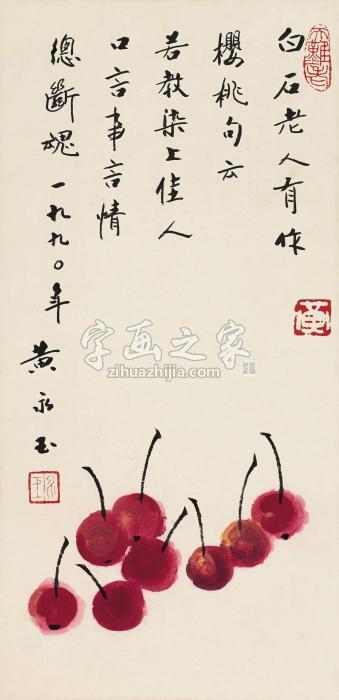 白石老人有作
櫻桃句云
若教染上佳人
口言事言情
總斷魂 一九九〇年 黄永玉
字画之家
zihuazhijia.com